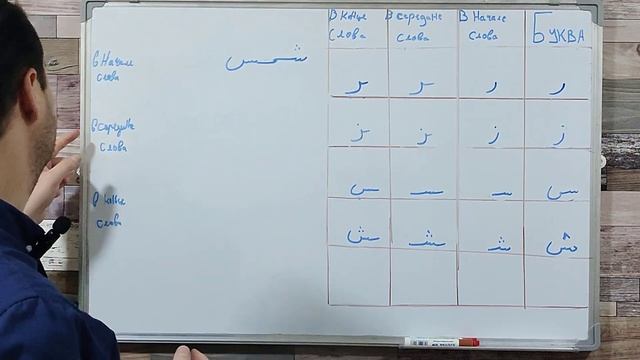 В конце
слова
В середине
слова
В Начале
слова
БУКВА
в Начале
слова
شمس
ـر ـر ر ر
в середине
слова
ـز ـز ز ز
ـس ـسـ سـ س
в конце
слова
ـش ـشـ شـ ش